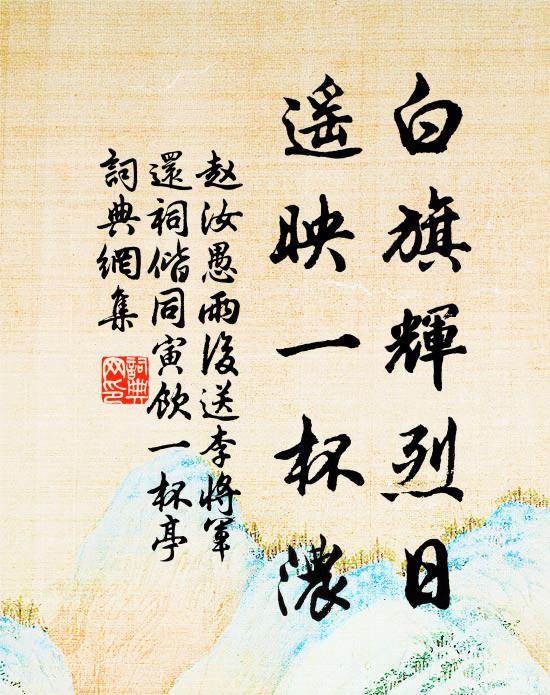 白旗輝烈日
遥映一杯濃
赵汝愚雨後送李將軍
還祠偕同寅飲一杯亭
詞典網集
詞典網印